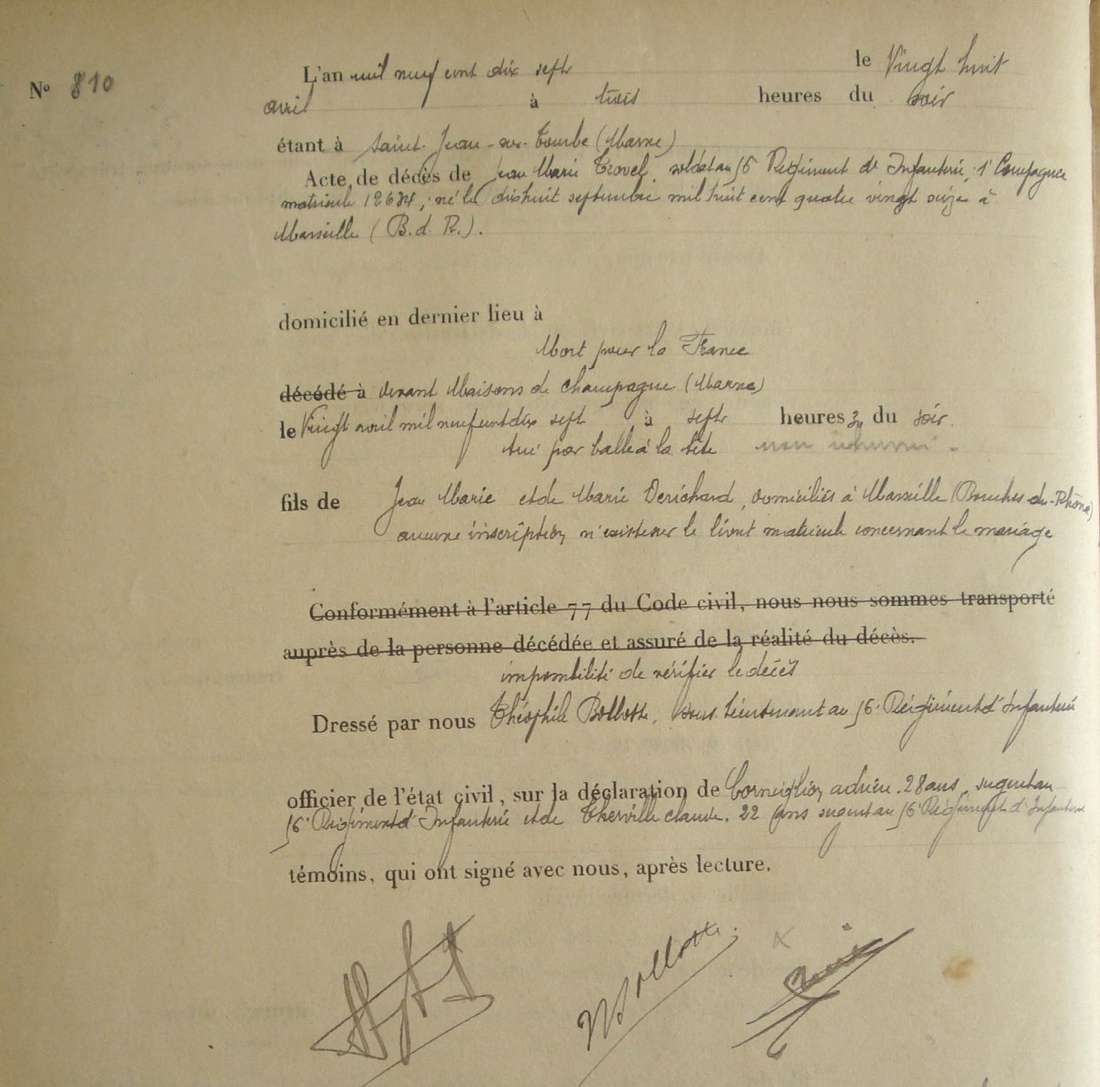 N° 810
L'an mil neuf cent dix sept le Vingt huit
avril à trois heures du soir
étant à Saint-Jean-sur-Tourbe (Marne)
Acte de décès de Jean Marie Trovel, soldat au 56 Régiment d'Infanterie, 1e Compagnie
matricule, né le dixhuit septembre mil huit cent quatre vingt seize à
Marseille (B. d. R.).
domicilié en dernier lieu à
Mort pour la France
décédé à devant Maisons de Champagne (Marne)
le Vingt avril mil neuf cent dix sept à sept heures du soir.
tué par balle à la tête non inhumé.
fils de Jean Marie et de Marie Derichard, domiciliés à Marseille (Bouches-du-Rhône)
aucune inscription n'existe sur le livret matricule concernant le mariage
Conformément à l'article 77 du Code civil, nous nous sommes transporté
auprès de la personne décédée et assuré de la réalité du décès.
impossibilité de vérifier le décès
Dressé par nous Théophile Bollotte, Sous Lieutenant au 56e Régiment d'Infanterie
officier de l'état civil, sur la déclaration de adrien 28 ans, sergent au
56e Régiment d'Infanterie et de Therville claude. 22 ans sergent au 56e Régiment d'Infanterie
témoins, qui ont signé avec nous, après lecture.
Bollotte